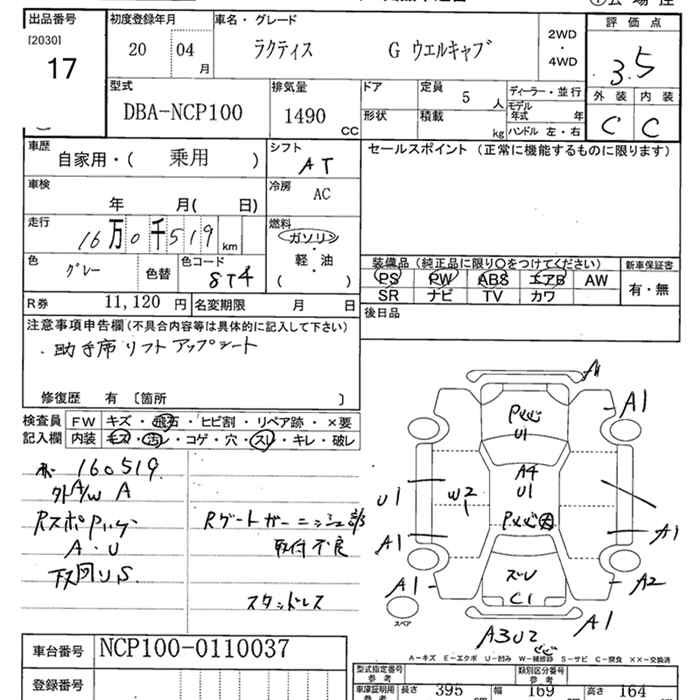 出品番号
[2030]
17
初度登録年月
20 04 月
車名・グレード
ラクティス G ウエルキャブ
2WD
・
4WD
評価点
3.5
外装 内装
C C
型式
DBA-NCP100
排気量
1490 CC
ドア
形状
定員
5 人
積載
kg
ディーラー・並行
モデル
年式 年
ハンドル 左・右
車歴
自家用・( 乗用 )
シフト
AT
セールスポイント (正常に機能するものに限ります)
車検
年 月( 日)
冷房
AC
走行
16万0千519 km
燃料
ガソリン
軽・油
( )
色
グレー
色替
色コード
8T4
装備品 (純正品に限り○をつけてください)
PS PW ABS エアB AW
SR ナビ TV カワ
新車保証書
有・無
R券 11,120 円
名変期限 月 日
後日品
注意事項申告欄(不具合内容等は具体的に記入して下さい)
・助手席リフトアップシート
修復歴 有 〔箇所 〕
検査員
記入欄
FW キズ・飛石・ヒビ割・リペア跡・×要
内装 キズ・汚レ・コゲ・穴・スレ・キレ・破レ
160519
外A/W A
A・U
下回りS
取付不良
スタッドレス
A
A1
U1
A4
U1
U1
W2
A1
A1
A1
A2
C1
A1
A3U2
スペア
A-キズ E-エクボ U-凹み W-補修跡 S-サビ C-腐食 ××-交換済
車台番号
NCP100-0110037
登録番号
型式指定番号
参考
類別区分番号
参考
車庫証明用
参考
長さ 395
幅 169
高さ 164